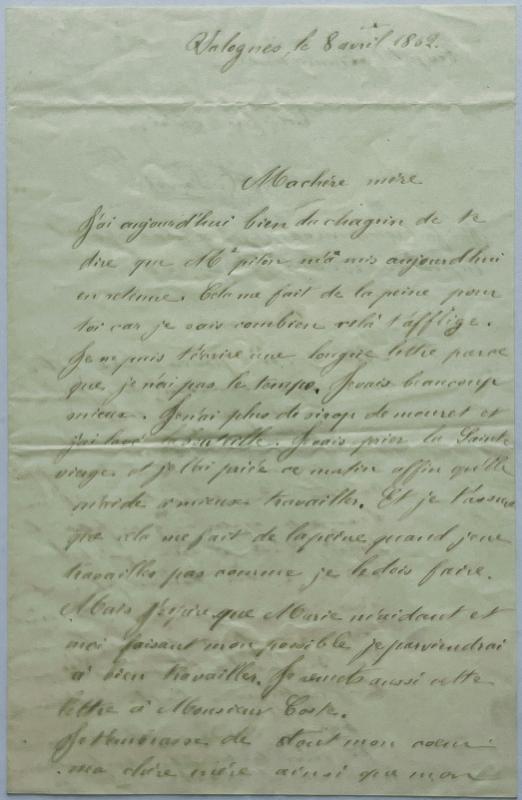 Valognes, le 8 avril 1862.
Ma chère mère
J'ai aujourd'hui bien du chagrin de te
dire que Mr piton m'a mis aujourd'hui
en retenue. Cela me fait de la peine pour
toi car je sais combien celà t'afflige.
Je ne puis t'écrire une longue lettre parce
que je n'ai pas le temps. Je vais beaucoup
mieux. Je n'ai plus de sirop de mouret et
j'ai lavé la bouteille. Je vais prier la Sainte
vierge et je l'ai priée ce matin affin qu'elle
m'aide à mieux travailler. Et je t'assure
que cela me fait de la peine quand je ne
travailles pas comme je le dois faire.
Mais j'espère que Marie m'aidant et
moi faisant mon possible je parviendrai
à bien travailler. Je remets aussi cette
lettre à Monsieur Coste.
Je t'embrasse de tout mon coeur
ma chère mère ainsi que mon